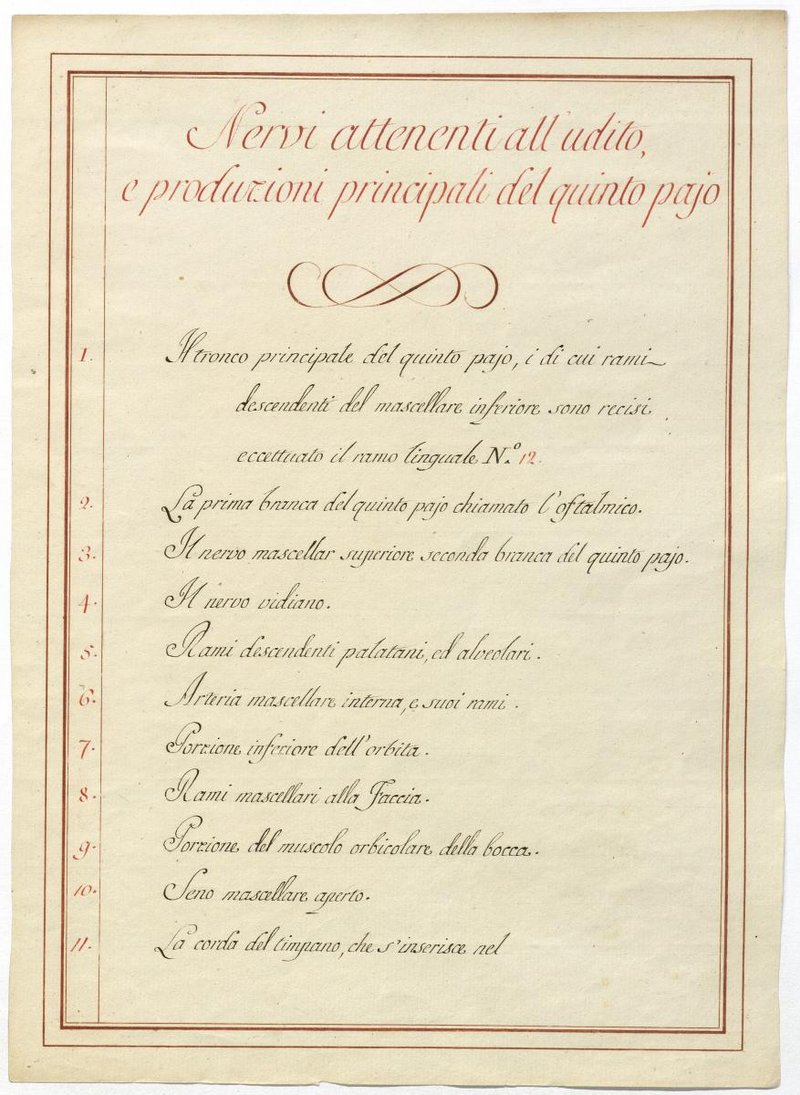 Nervi attenenti all'udito,
e produzioni principali del quinto pajo
1. Il tronco principale del quinto pajo, i di cui rami
descendenti del mascellare inferiore sono recisi
eccettuato il ramo linguale N.º 12.
2. La prima branca del quinto pajo chiamato l'oftalmico.
3. Il nervo mascellar superiore seconda branca del quinto pajo.
4. Il nervo vidiano.
5. Rami descendenti palatani, ed alveolari.
6. Arteria mascellare interna, e suoi rami.
7. Porzione inferiore dell'orbita.
8. Rami mascellari alla Faccia.
9. Porzione del muscolo orbicolare della bocca.
10. Seno mascellare aperto.
11. La corda del timpano, che s'inserisce nel